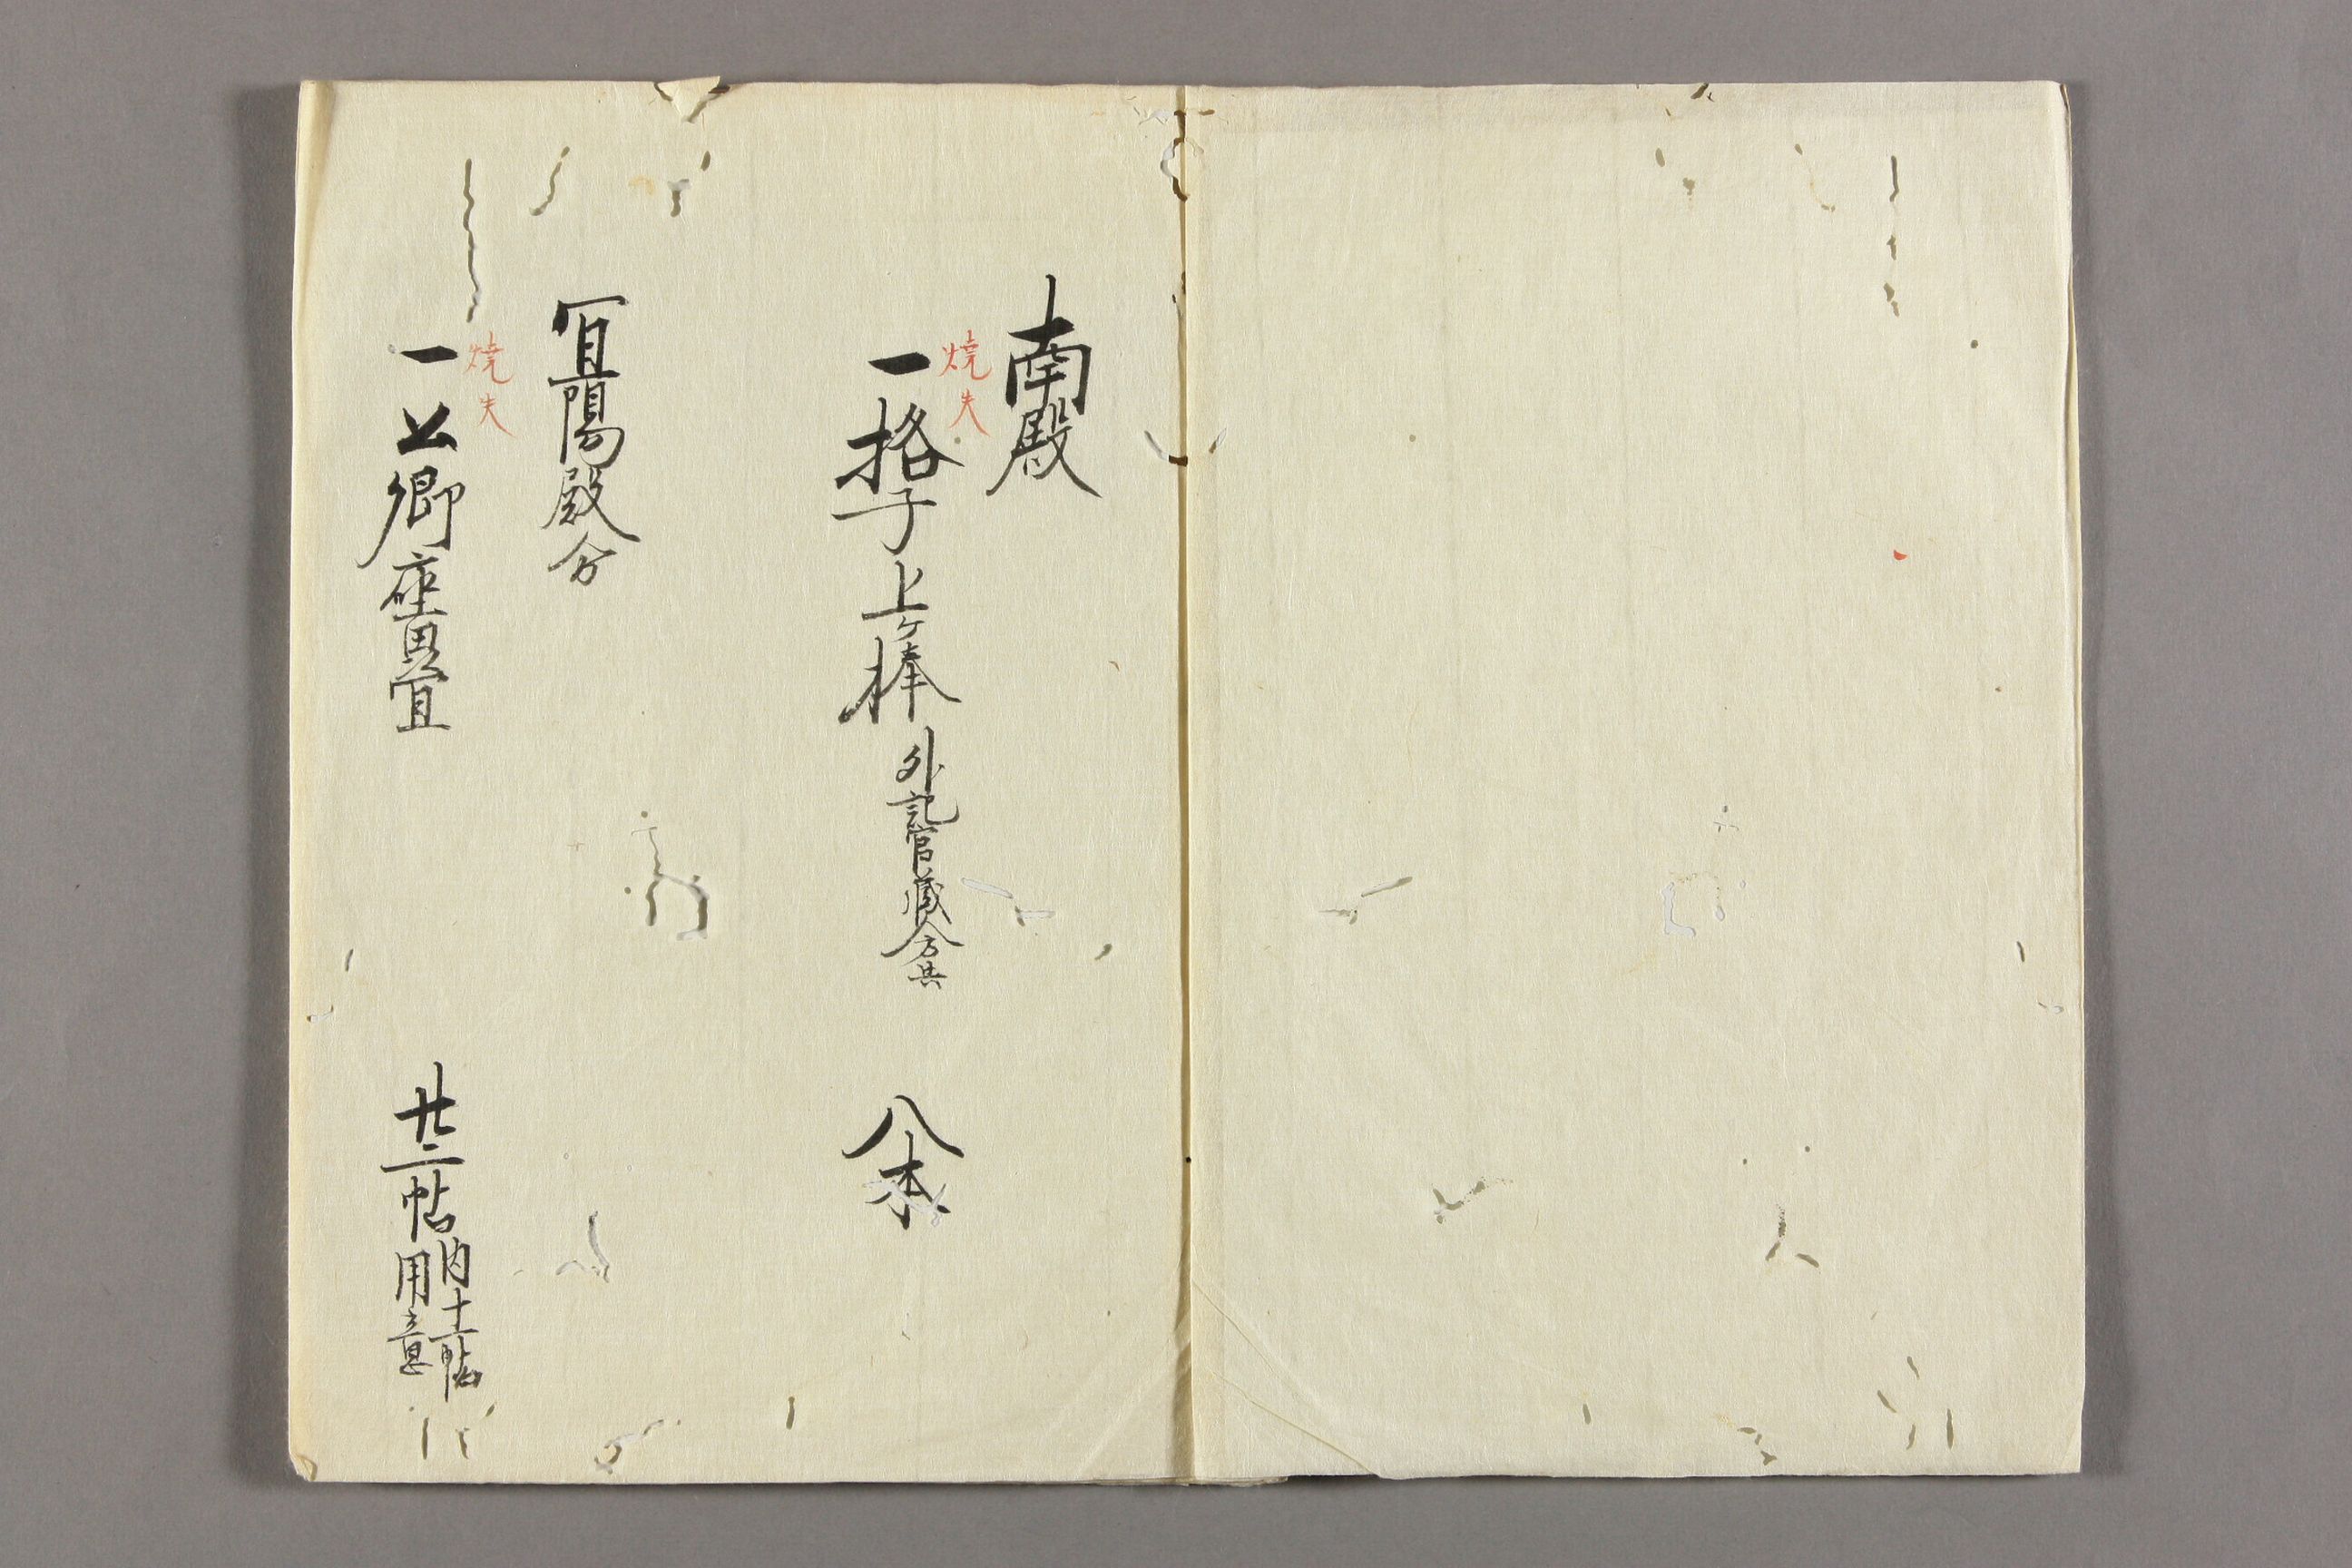 南殿
焼失
一格子上ケ棒外記官蔵人方共 八本
冝陽殿分
焼失
一公卿座畳 廿二帖
内十二帖
用意